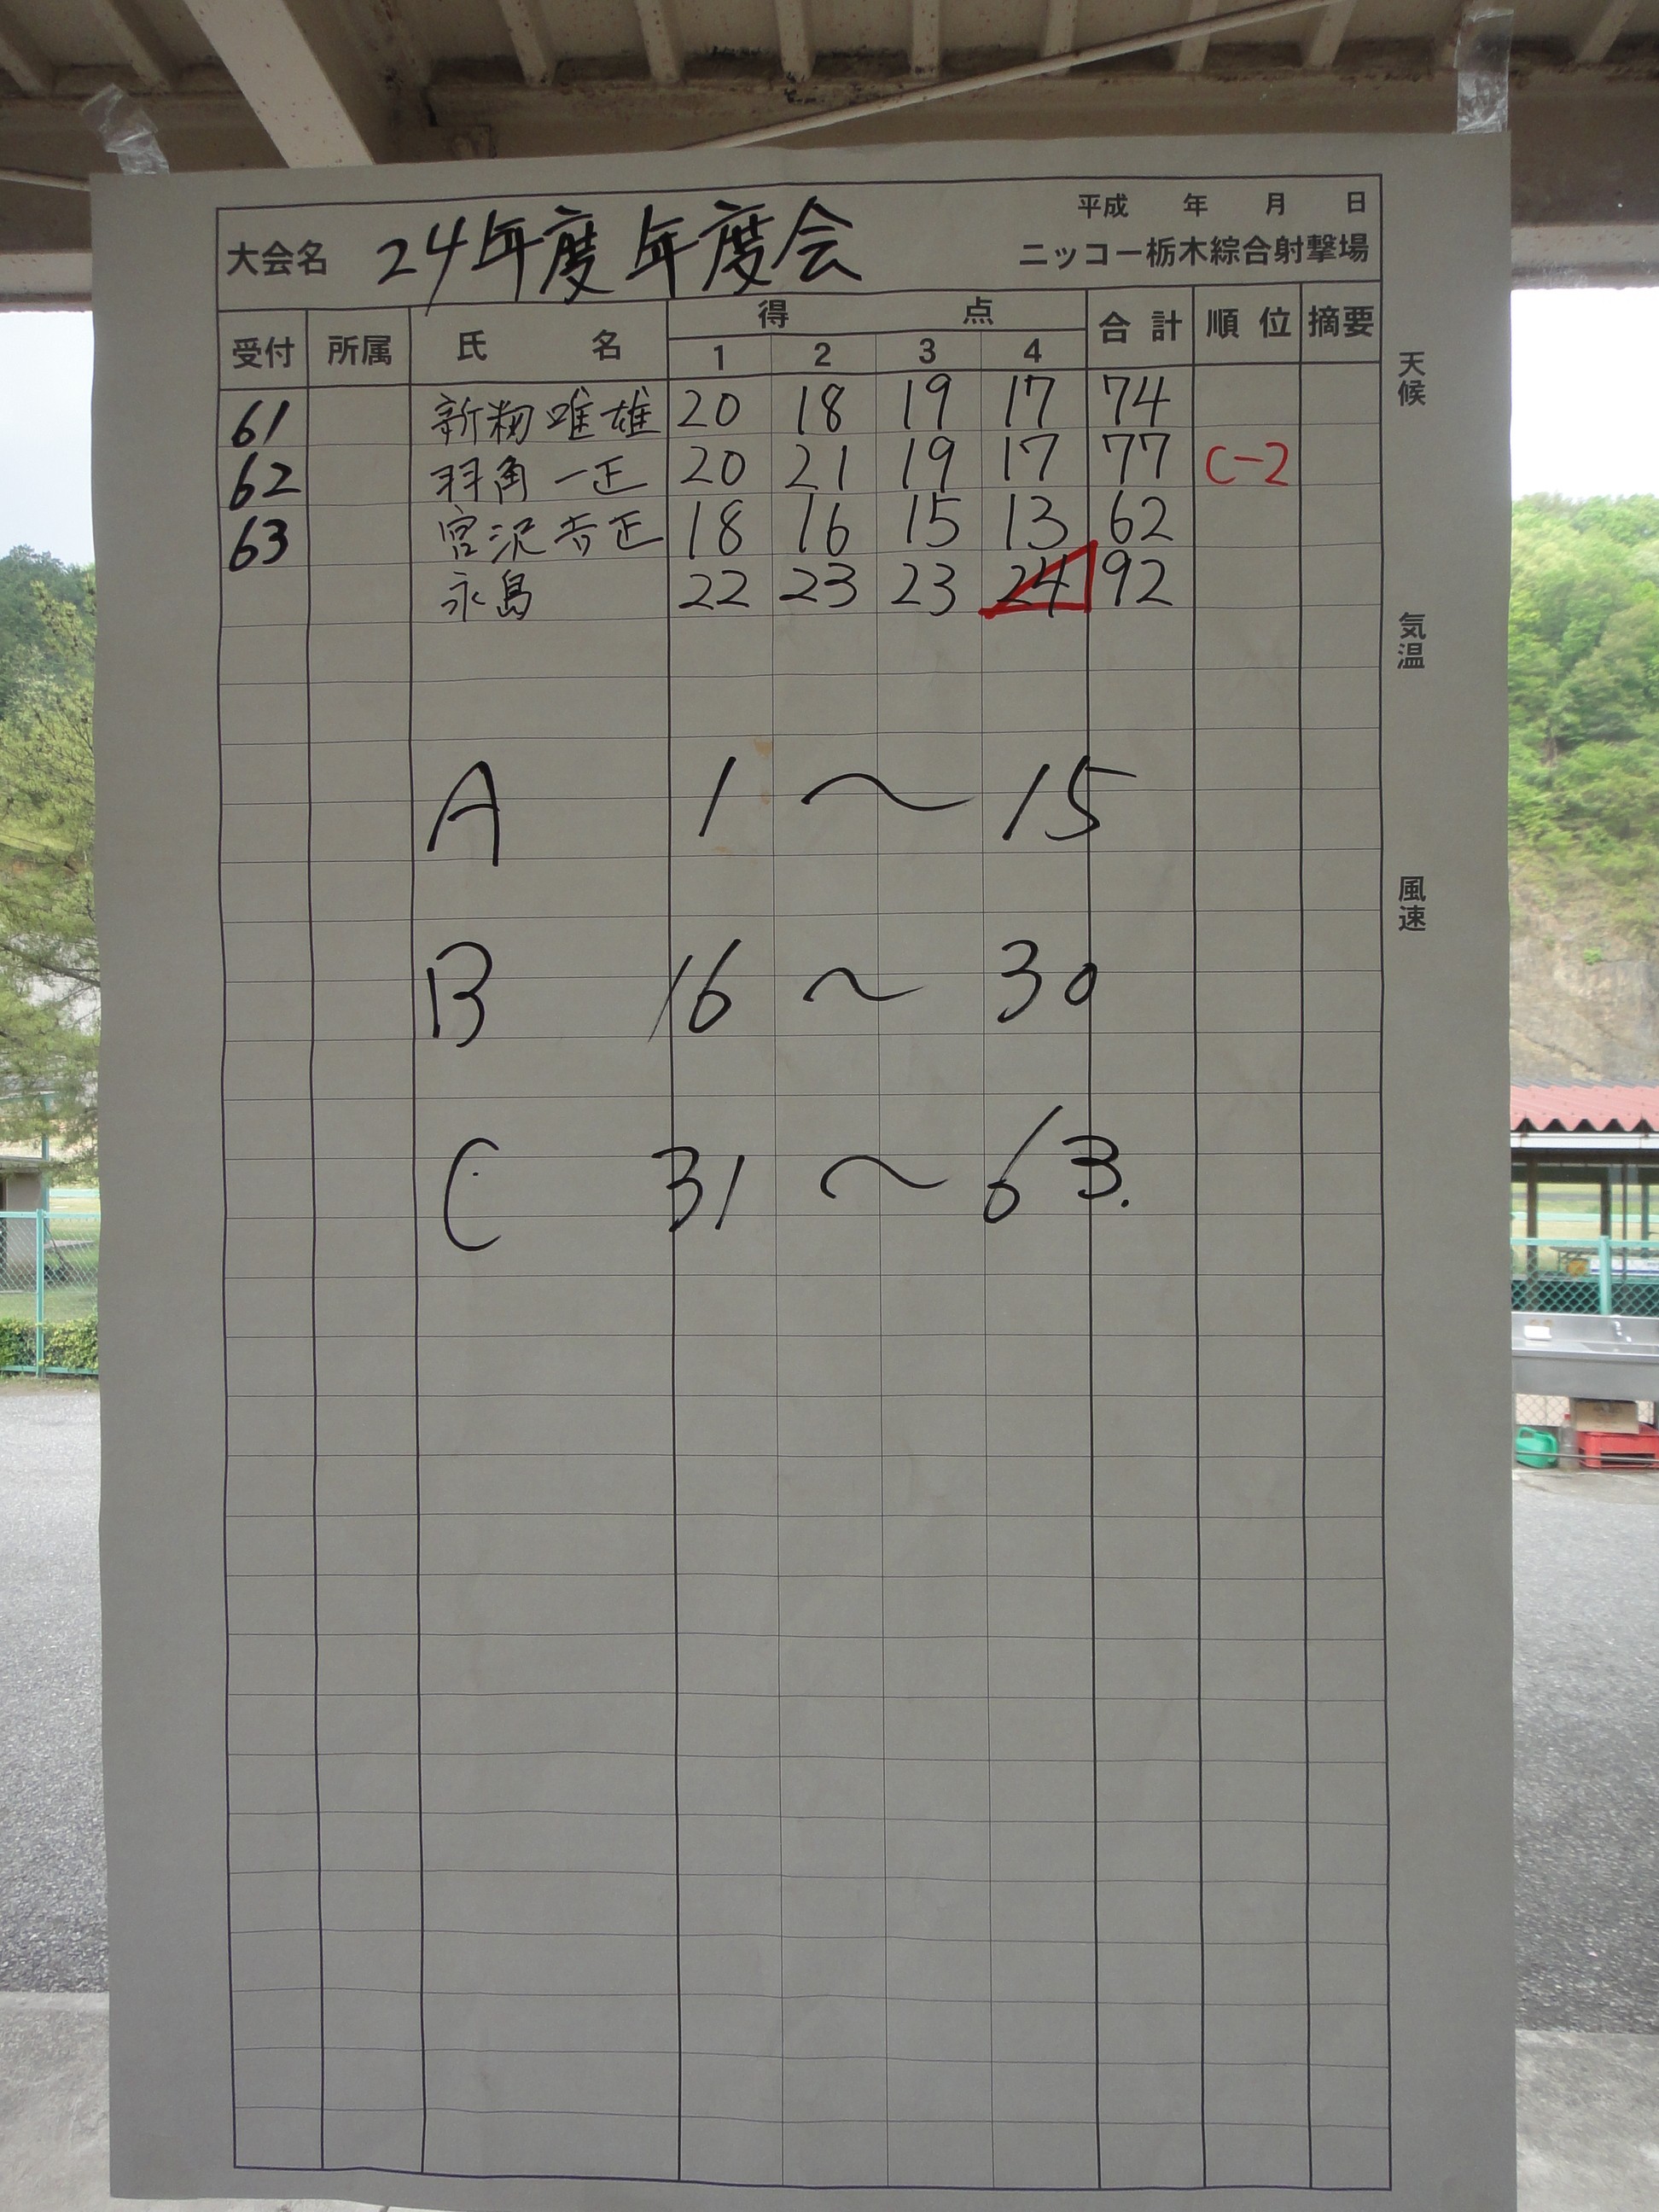 平成 年 月 日
大会名 24年度年度会 ニッコー栃木綜合射撃場
受付 所属 氏 名 得 点 合計 順位 摘要
1 2 3 4
61 新 唯雄 20 18 19 17 74
62 羽角 一正 20 21 19 17 77 C-2
63 宮沢 吉正 18 16 15 13 62
永島 22 23 23 24 92
A 1 〜 15
B 16 〜 30
C 31 〜 63.
天候
気温
風速